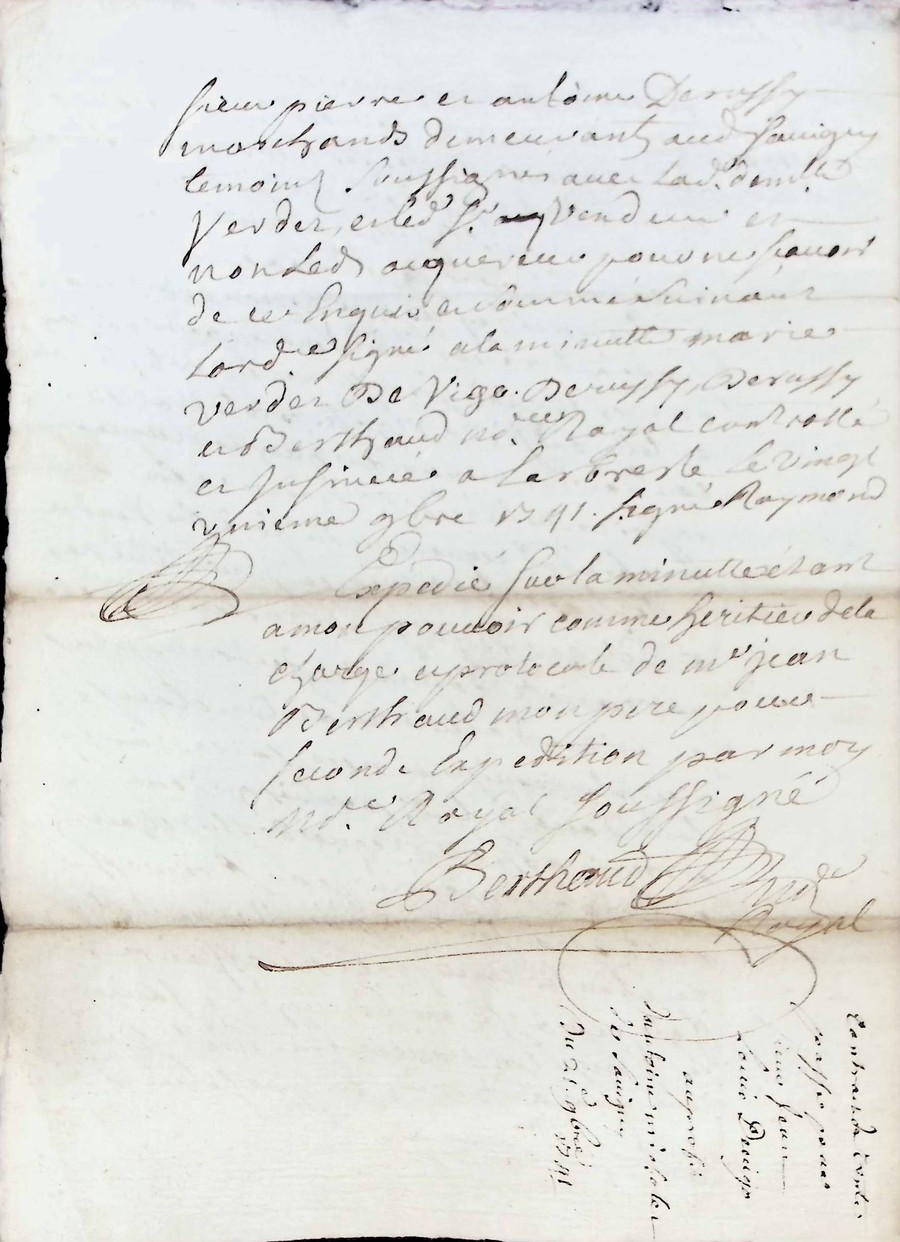 sieur pierre et antoine Derussy
marchands demeurants aud Sauigny
Soussignés avec lad.e dem.lle
Verder, et led S.r Vendeur et
non Led acquereur pour ne scauoir
de ce Enquis et sommé suivant
Lord.ce signé a la minutte marie
verder De Vigo. Derussy, Derussy
et Berthaud no.re Royal controllé
et Insinué a Larbresle le vingt
vnieme 9bre 1741. signé Raymond
Expedié sur la minutte étant
a mon pouvoir comme heritier de la
charge et protocole de m.re jean
Berthaud mon pere pour
seconde Expedition par moy
No.re Royal soussigné
Berthaud no.re
Royal
Contract de
passé par
sieur Jean
Louis Devigo
au profit
d'antoine
de Sauigny
Du 21.e 9bre 1741